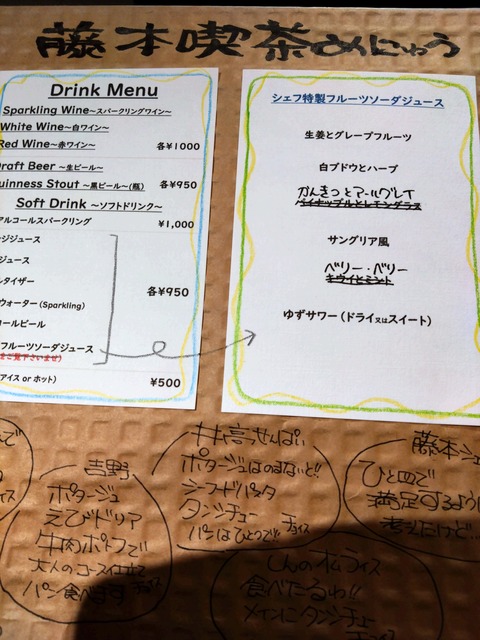 藤本喫茶めんにゅう
Drink Menu
Sparkling Wine~スパークリングワイン~
White Wine~白ワイン~
Red Wine~赤ワイン~
各¥1000
Draft Beer ~生ビール~
Guinness Stout ~黒ビール~(瓶)
各¥950
Soft Drink ~ソフトドリンク~
アルコールスパークリング
¥1,000
ジジュース
ジュース
ルタイザー
ウォーター(Sparkling)
コールビール
フルーツソーダジュース
をご覧下さいませ)
各¥950
アイス or ホット)
¥500
シェフ特製フルーツソーダジュース
生姜とグレープフルーツ
白ブドウとハーブ
かんきつとアールグレイ
パイナップルとレモングラス
サングリア風
ベリー・ベリー
キウイとミント
ゆずサワー(ドライ又はスイート)
吉野
ポタージュ
えびドリア
牛肉ポトフで
大人のコース仕立て
パン食べます チョイス
井高せんぱい
ポタージュはのまないと!!
シーフードパスタ
タンシチュー
パンはひとつで!! チョイス
藤本シェ
ひと皿で
満足するように
考えたけど…
しんのオムライス
食べたるわ!!
メインにタンシチュー